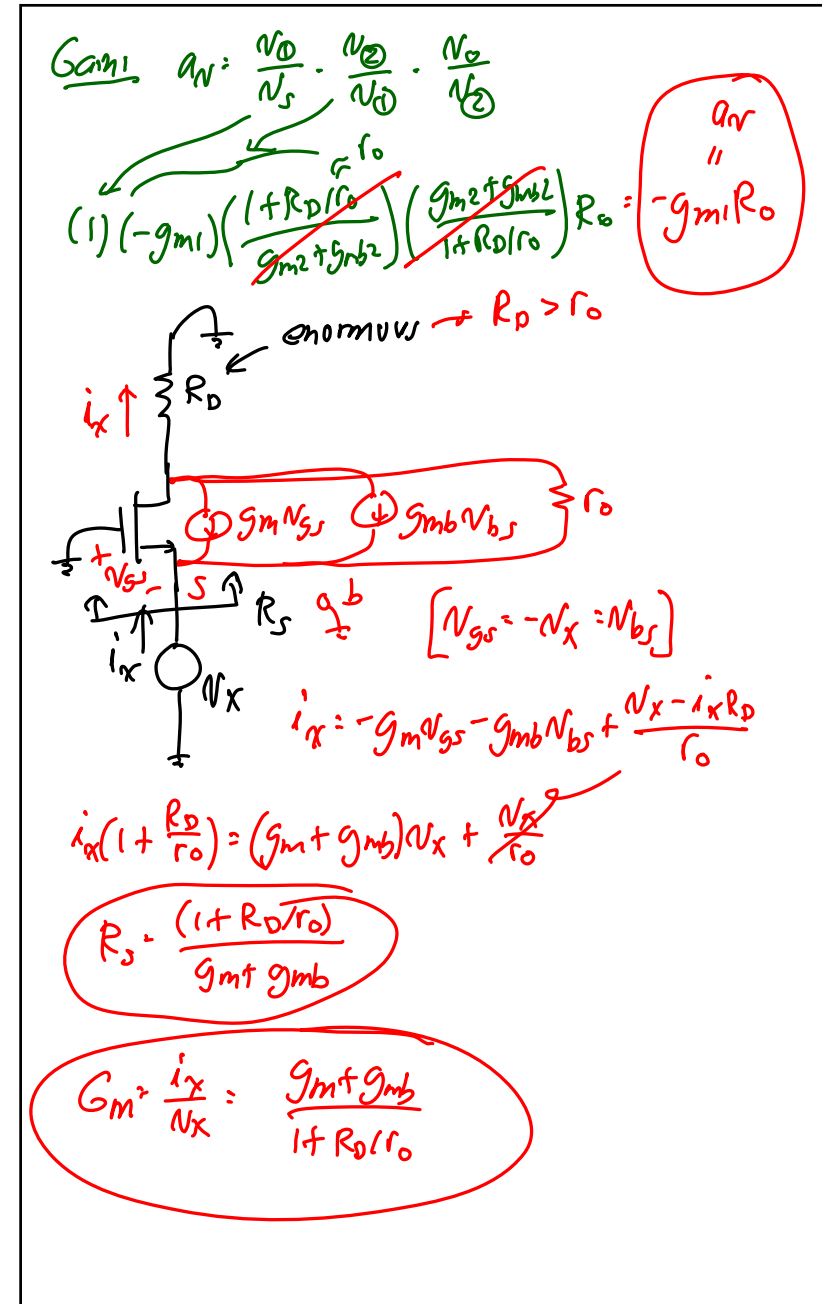 Gain: a_v: v_① / v_s · v_② / v_① · v_o / v_②
= r_o
(1)(-g_m1)((1+R_D/r_o) / (g_m2+g_mb2))((g_m2+g_mb2) / (1+R_D/r_o))R_o = -g_m1R_o
a_v
"
enormous → R_D > r_o
i_x ↑ R_D
g_m v_gs g_mb v_bs r_o
+ v_gs - s
R_s b
[v_gs = -v_x = v_bs]
i_x v_x
i_x = -g_m v_gs - g_mb v_bs + (v_x - i_x R_D) / r_o
i_x(1 + R_D/r_o) = (g_m + g_mb)v_x + v_x/r_o
R_s = (1+R_D/r_o) / (g_m+g_mb)
G_m = i_x / v_x = (g_m+g_mb) / (1+R_D/r_o)